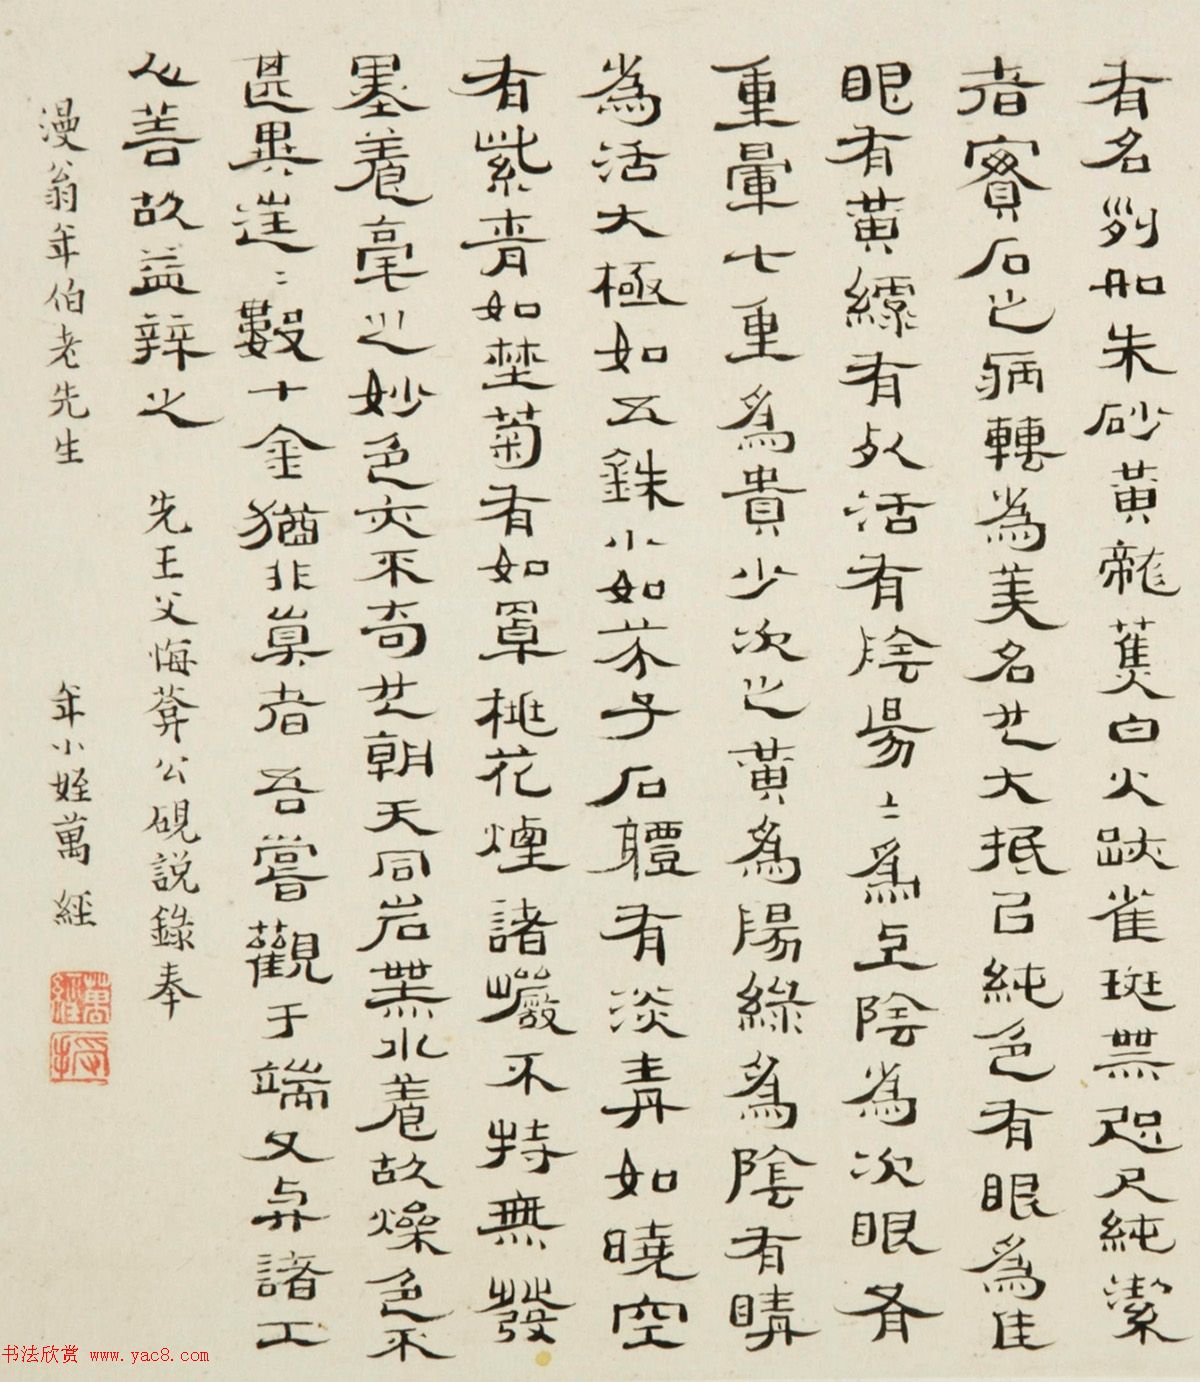 有名列如朱砂黃龍蕉白火蹤雀斑無咫尺純潔
者實石之病轉為美名廿大抵㠯純色有眼為佳
眼有黃纁有死活有陰陽〻為上陰為次眼有
重暈七重為貴少次之黃為陽綠為陰有睛
為活大極如五銖小如芥子石軆有淡青如曉空
有紫青如埜菊有如罩桃花煙諸巖不特無發
墨養毫之妙色亦不奇廿朝天同岩無水養故燥色不
甚異進〻數十金猶非真者吾嘗觀于端又與諸工
心善故益辯之
先王父悔菴公硯說錄奉
漫翁年伯老先生
年小姪萬經
萬經
书法欣赏 www.yac8.com